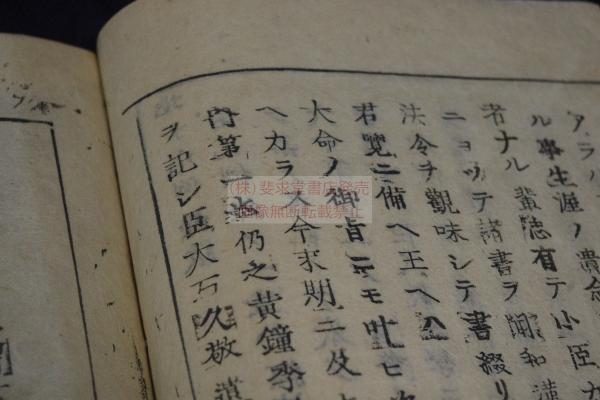 アラハ
ル事生涯ノ貴命
者ナル輩聴有テ小臣
ニヨツテ諸書ヲ開和漢
法令ヲ観味シテ書綴リ
君覽ニ備ヘ王ヘ
大命ノ御旨ニモ吐ヒ
ヘカラス今末期ニ及
門第一 仍之黄鐘季
ヲ記シ臣大石久敬
(株)斐求堂書店発売
画像無断転載禁止